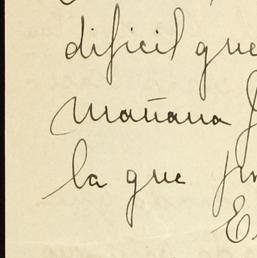 dificil que
mañana
la que